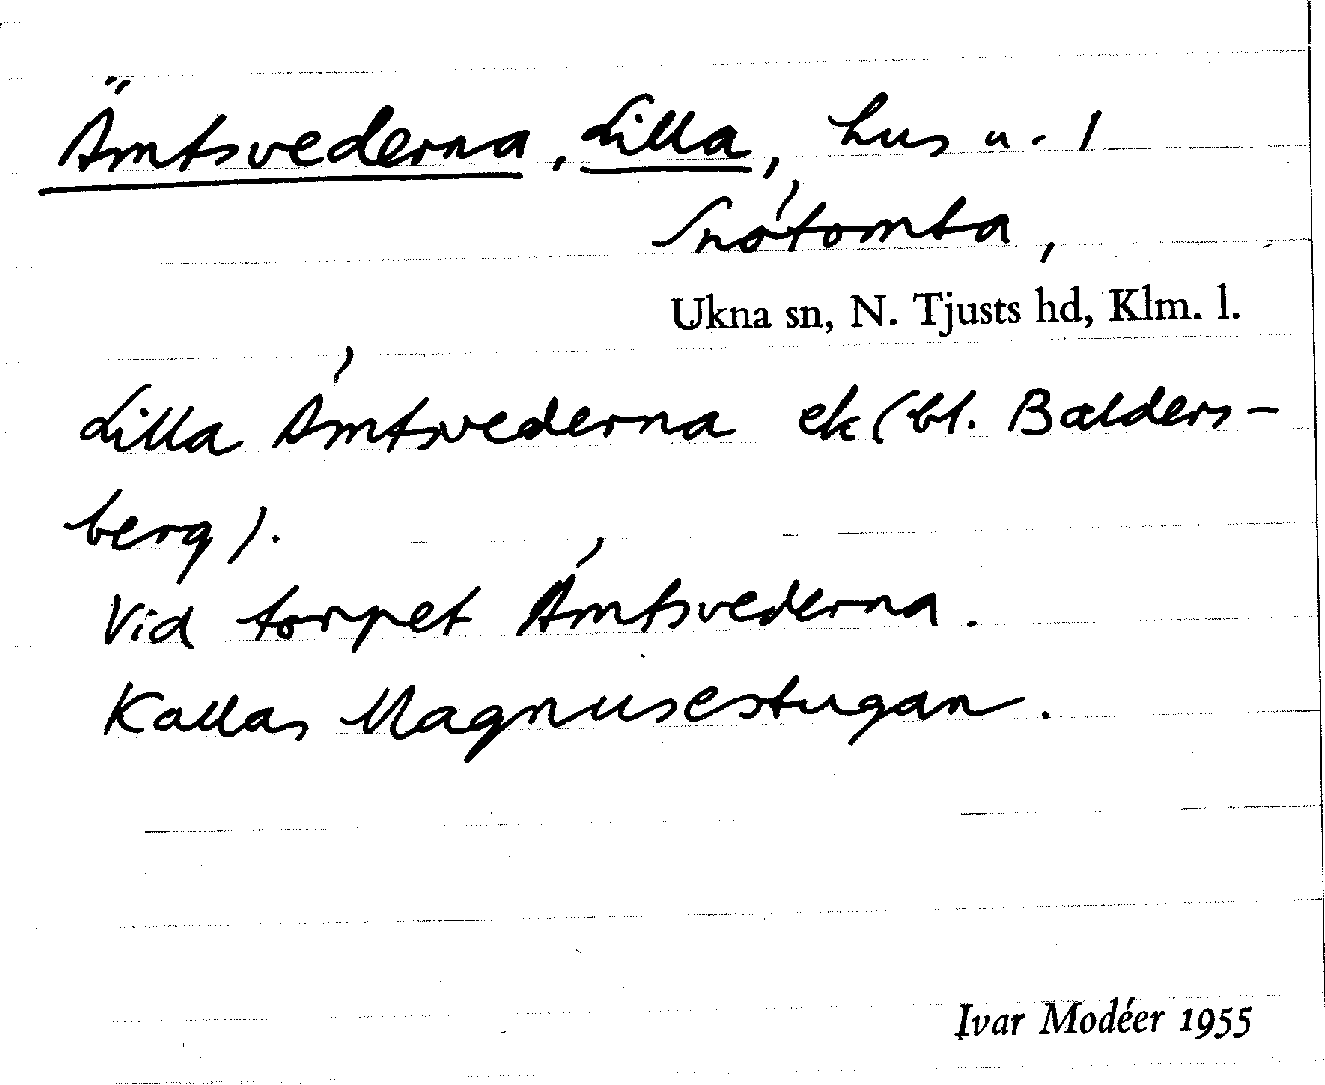 Ämtsvederna, Lilla, hus u. 1
Snåtomta,
Ukna sn, N. Tjusts hd, Klm. l.
Lilla Ämtsvederna ek (bl. Balders-
berg).
Vid torpet Ämtsvederna.
Kallas Magnusestugan.
Ivar Modéer 1955